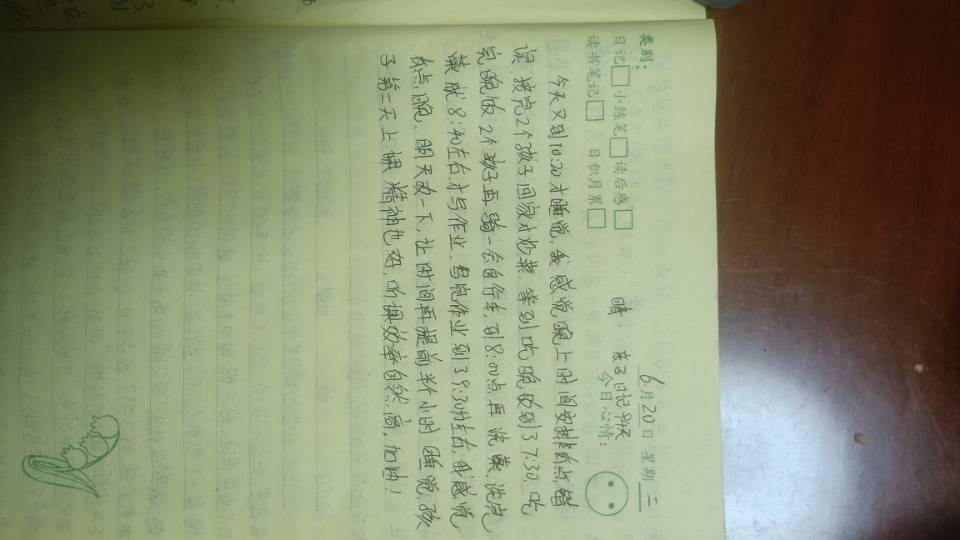 类别:
日记□ 小练笔□ 读后感□
读书笔记□ 日积月累□
6月20日 星期二
晴 亲子日记94天
今日心情:
今天又到10:20才睡觉,我感觉晚上时间安排有点错
误,接完2个孩子回家才炒菜,等到吃晚饭到了7:30,吃
完晚饭2个孩子再骑一会自行车,到8:00点再洗澡,洗完
澡就8:40左右,才写作业,写完作业到了9:30分左右,我感觉
有点晚、明天改一下,让时间再提前半个小时睡觉,孩
子第二天上课精神也好,听课效率自然高,加油!